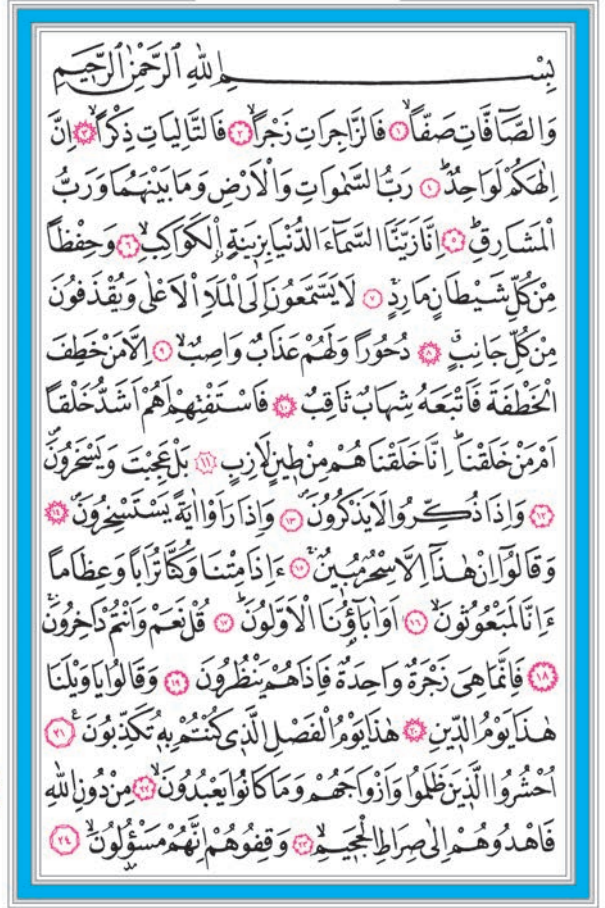 بِسْمِ اللهِ الرَّحْمٰنِ الرَّحِيمِ
وَالصَّٓافَّاتِ صَفًّاۙ ﴿١﴾ فَالزَّاجِرَاتِ زَجْرًاۙ ﴿٢﴾ فَالتَّالِيَاتِ ذِكْرًاۙ ﴿٣﴾ اِنَّ
اِلٰهَكُمْ لَوَاحِدٌۜ ﴿٤﴾ رَبُّ السَّمٰوَاتِ وَالْاَرْضِ وَمَا بَيْنَهُمَا وَرَبُّ
الْمَشَارِقِۜ ﴿٥﴾ اِنَّا زَيَّنَّا السَّمَٓاءَ الدُّنْيَا بِزِينَةٍۨ الْكَوَاكِبِۙ ﴿٦﴾ وَحِفْظًا
مِنْ كُلِّ شَيْطَانٍ مَارِدٍۚ ﴿٧﴾ لَا يَسَّمَّعُونَ اِلَى الْمَلَاِ الْاَعْلٰى وَيُقْذَفُونَ
مِنْ كُلِّ جَانِبٍۗ ﴿٨﴾ دُحُورًا وَلَهُمْ عَذَابٌ وَاصِبٌۙ ﴿٩﴾ اِلَّا مَنْ خَطِفَ
الْخَطْفَةَ فَاَتْبَعَهُ شِهَابٌ ثَاقِبٌ ﴿١٠﴾ فَاسْتَفْتِهِمْ اَهُمْ اَشَدُّ خَلْقًا
اَمْ مَنْ خَلَقْنَاۜ اِنَّا خَلَقْنَاهُمْ مِنْ طِينٍ لَازِبٍ ﴿١١﴾ بَلْ عَجِبْتَ وَيَسْخَرُونَۖ
﴿١٢﴾ وَاِذَا ذُكِّرُوا لَا يَذْكُرُونَۖ ﴿١٣﴾ وَاِذَا رَاَوْا اٰيَةً يَسْتَسْخِرُونَۖ ﴿١٤﴾
وَقَالُٓوا اِنْ هٰذَٓا اِلَّا سِحْرٌ مُبِينٌۚ ﴿١٥﴾ ءَاِذَا مِتْنَا وَكُنَّا تُرَابًا وَعِظَامًا
ءَاِنَّا لَمَبْعُوثُونَۙ ﴿١٦﴾ اَوَاٰبَٓاؤُ۬نَا الْاَوَّلُونَۜ ﴿١٧﴾ قُلْ نَعَمْ وَاَنْتُمْ دَاخِرُونَۚ
﴿١٨﴾ فَاِنَّمَا هِيَ زَجْرَةٌ وَاحِدَةٌ فَاِذَا هُمْ يَنْظُرُونَ ﴿١٩﴾ وَقَالُوا يَا وَيْلَنَا
هٰذَا يَوْمُ الدِّينِ ﴿٢٠﴾ هٰذَا يَوْمُ الْفَصْلِ الَّذِي كُنْتُمْ بِهِ تُكَذِّبُونَ۟ ﴿٢١﴾
اُحْشُرُوا الَّذِينَ ظَلَمُوا وَاَزْوَاجَهُمْ وَمَا كَانُوا يَعْبُدُونَۙ ﴿٢٢﴾ مِنْ دُونِ اللهِ
فَاهْدُوهُمْ اِلٰى صِرَاطِ الْجَحِيمِۙ ﴿٢٣﴾ وَقِفُوهُمْ اِنَّهُمْ مَسْؤُ۫لُونَۙ ﴿٢٤﴾